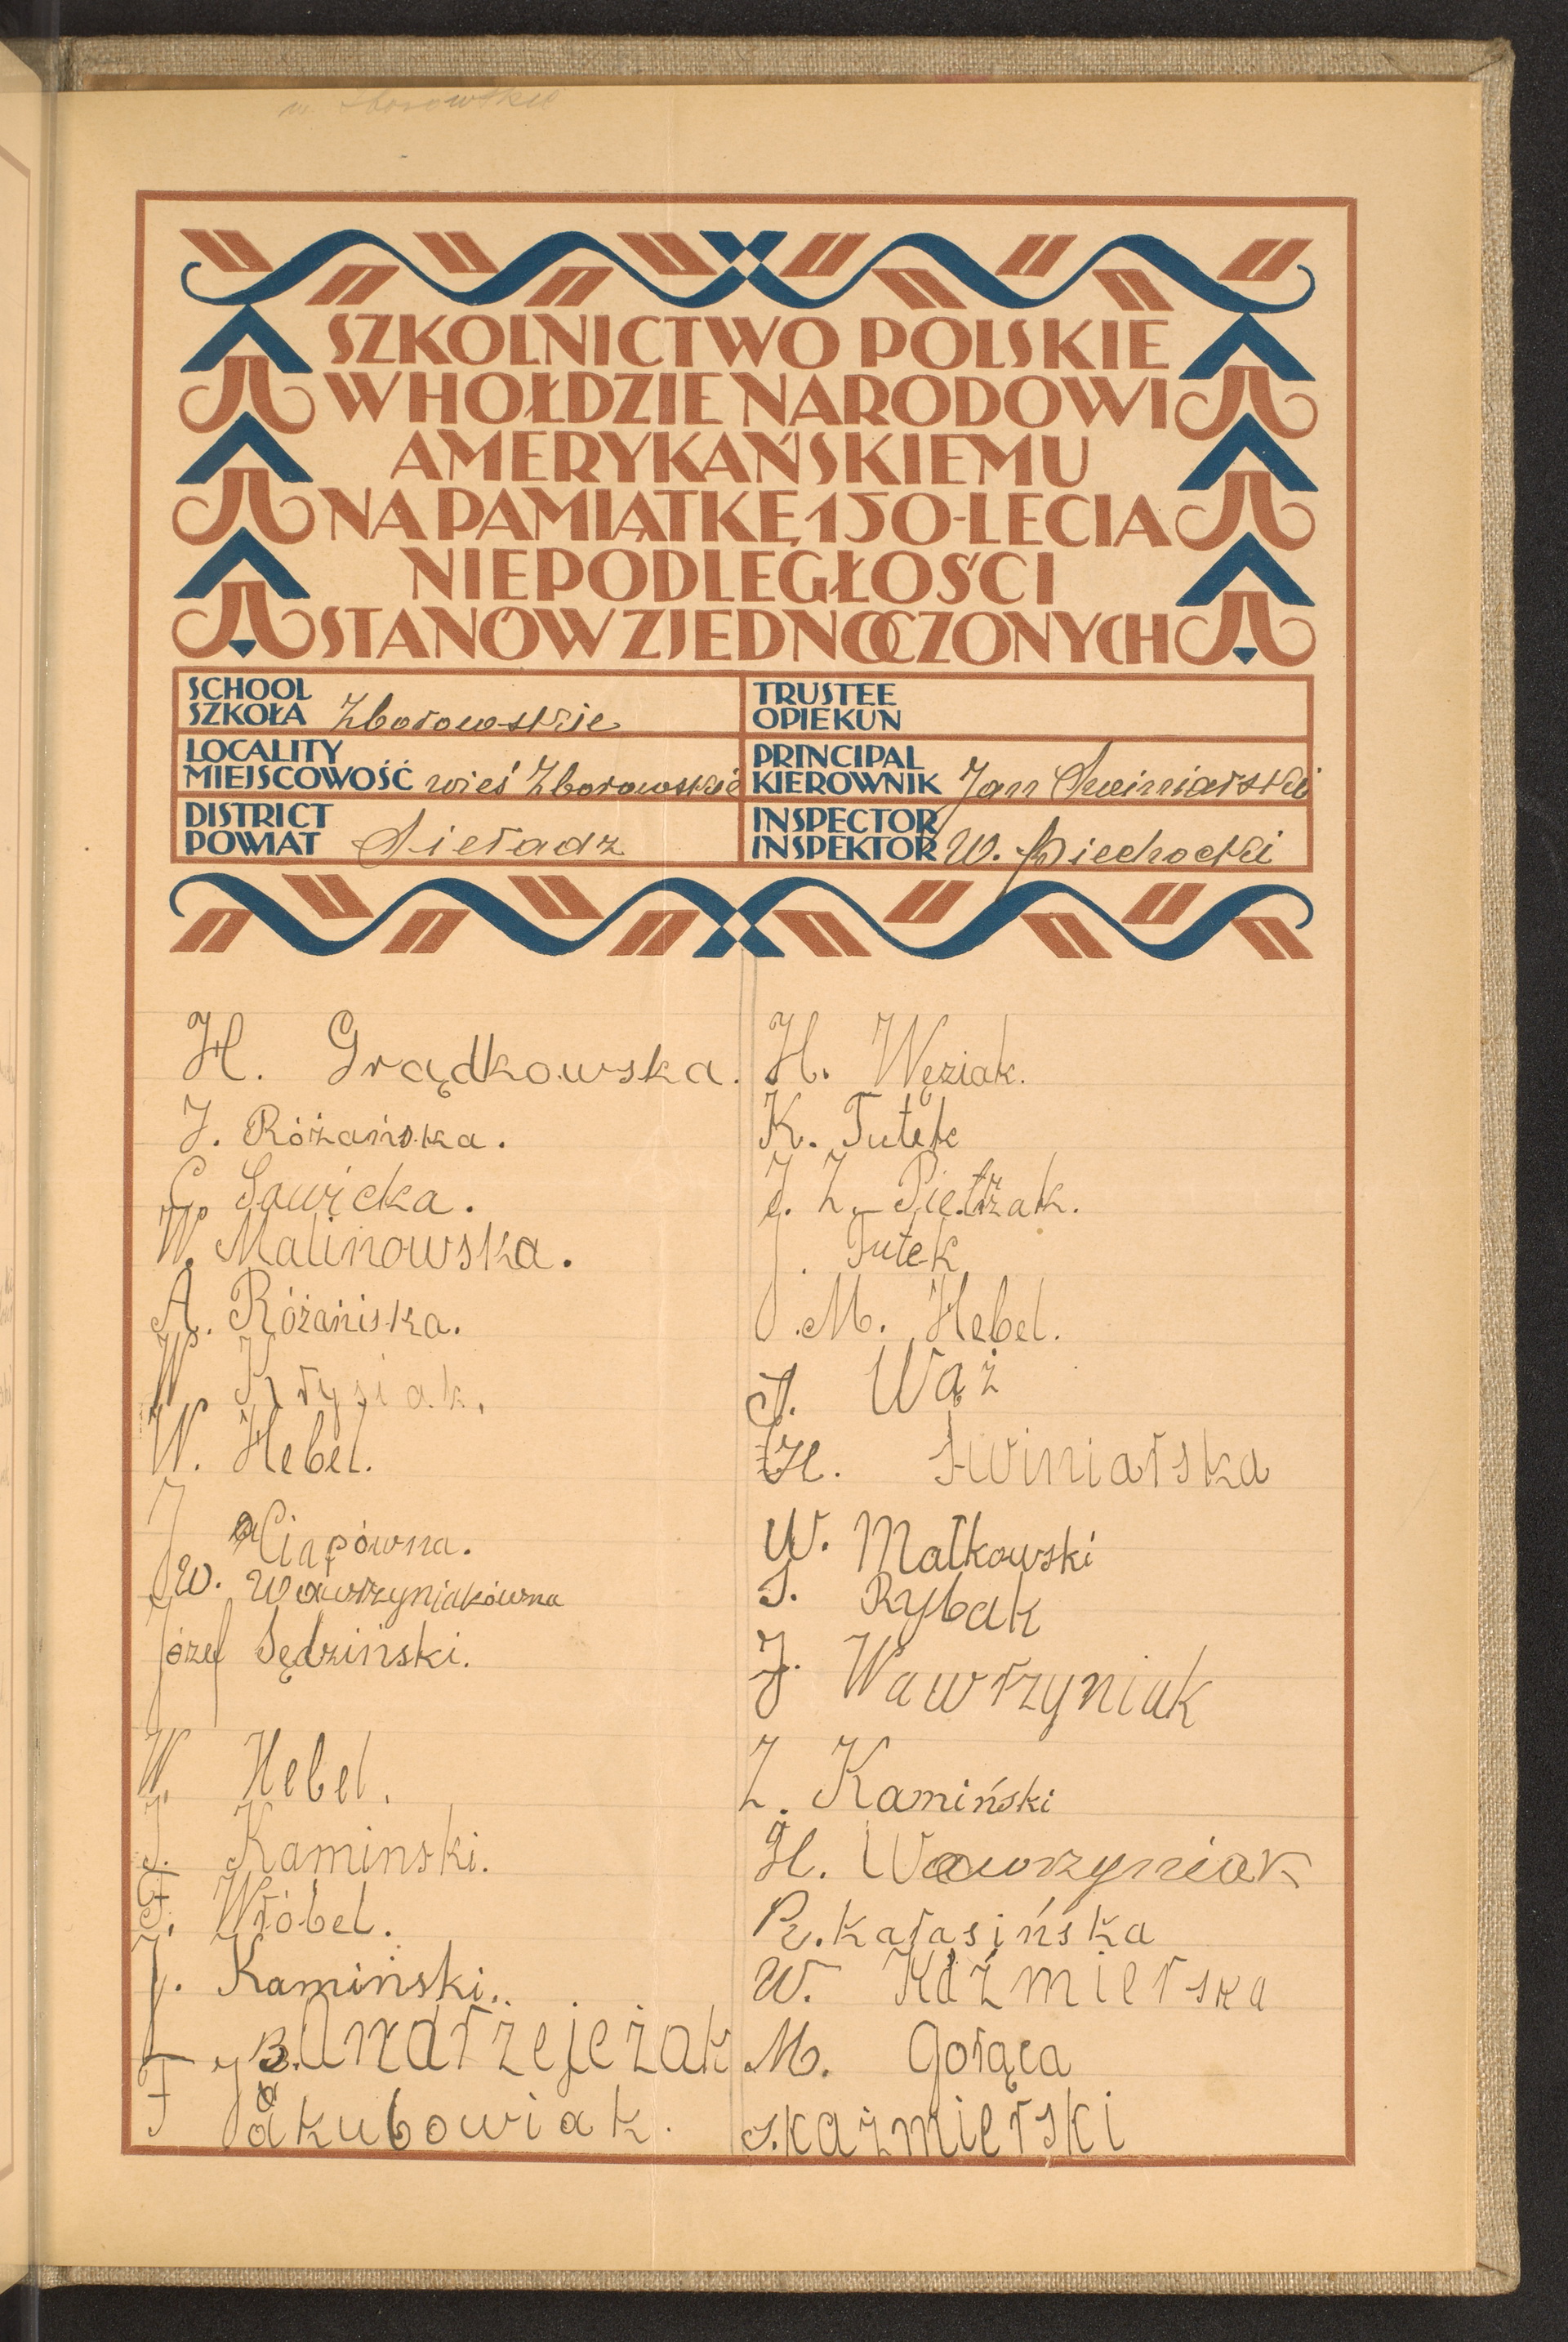 w. Zborowskie
SZKOLNICTWO POLSKIE
W HOŁDZIE NARODOWI
AMERYKAŃSKIEMU
NA PAMIĄTKĘ 150-LECIA
NIEPODLEGŁOŚCI
STANÓW ZJEDNOCZONYCH
SCHOOL
SZKOŁA Zborowskie
TRUSTEE
OPIEKUN
LOCALITY
MIEJSCOWOŚĆ wieś Zborowskie
PRINCIPAL
KIEROWNIK Jan Świniarski
DISTRICT
POWIAT Sieradz
INSPECTOR
INSPEKTOR W. Piechocki
H. Grądkowska.
J. Różańska.
C. Sawicka.
W. Malinowska.
A. Różańska.
W. Krysiak.
W. Hebel.
J. Ciapówna.
W. Wawrzyniakówna
Józef Sędziński.
W. Hebel.
J. Kaminski.
F. Wróbel.
J. Kamiński.
B. Andrzejeżak
F Jakubowiak.
H. Węziak.
K. Tutek
J. Z. Pietrzak.
J. Tutek
M. Hebel.
A. Wąż
H. Swiniarska
W. Małkowski
S. Rybak
J. Wawrzyniak
Z. Kamiński
H. Wawrzyniak
R. Karasińska
W. Kaźmierska
M. Gorąca
S. kaźmierski